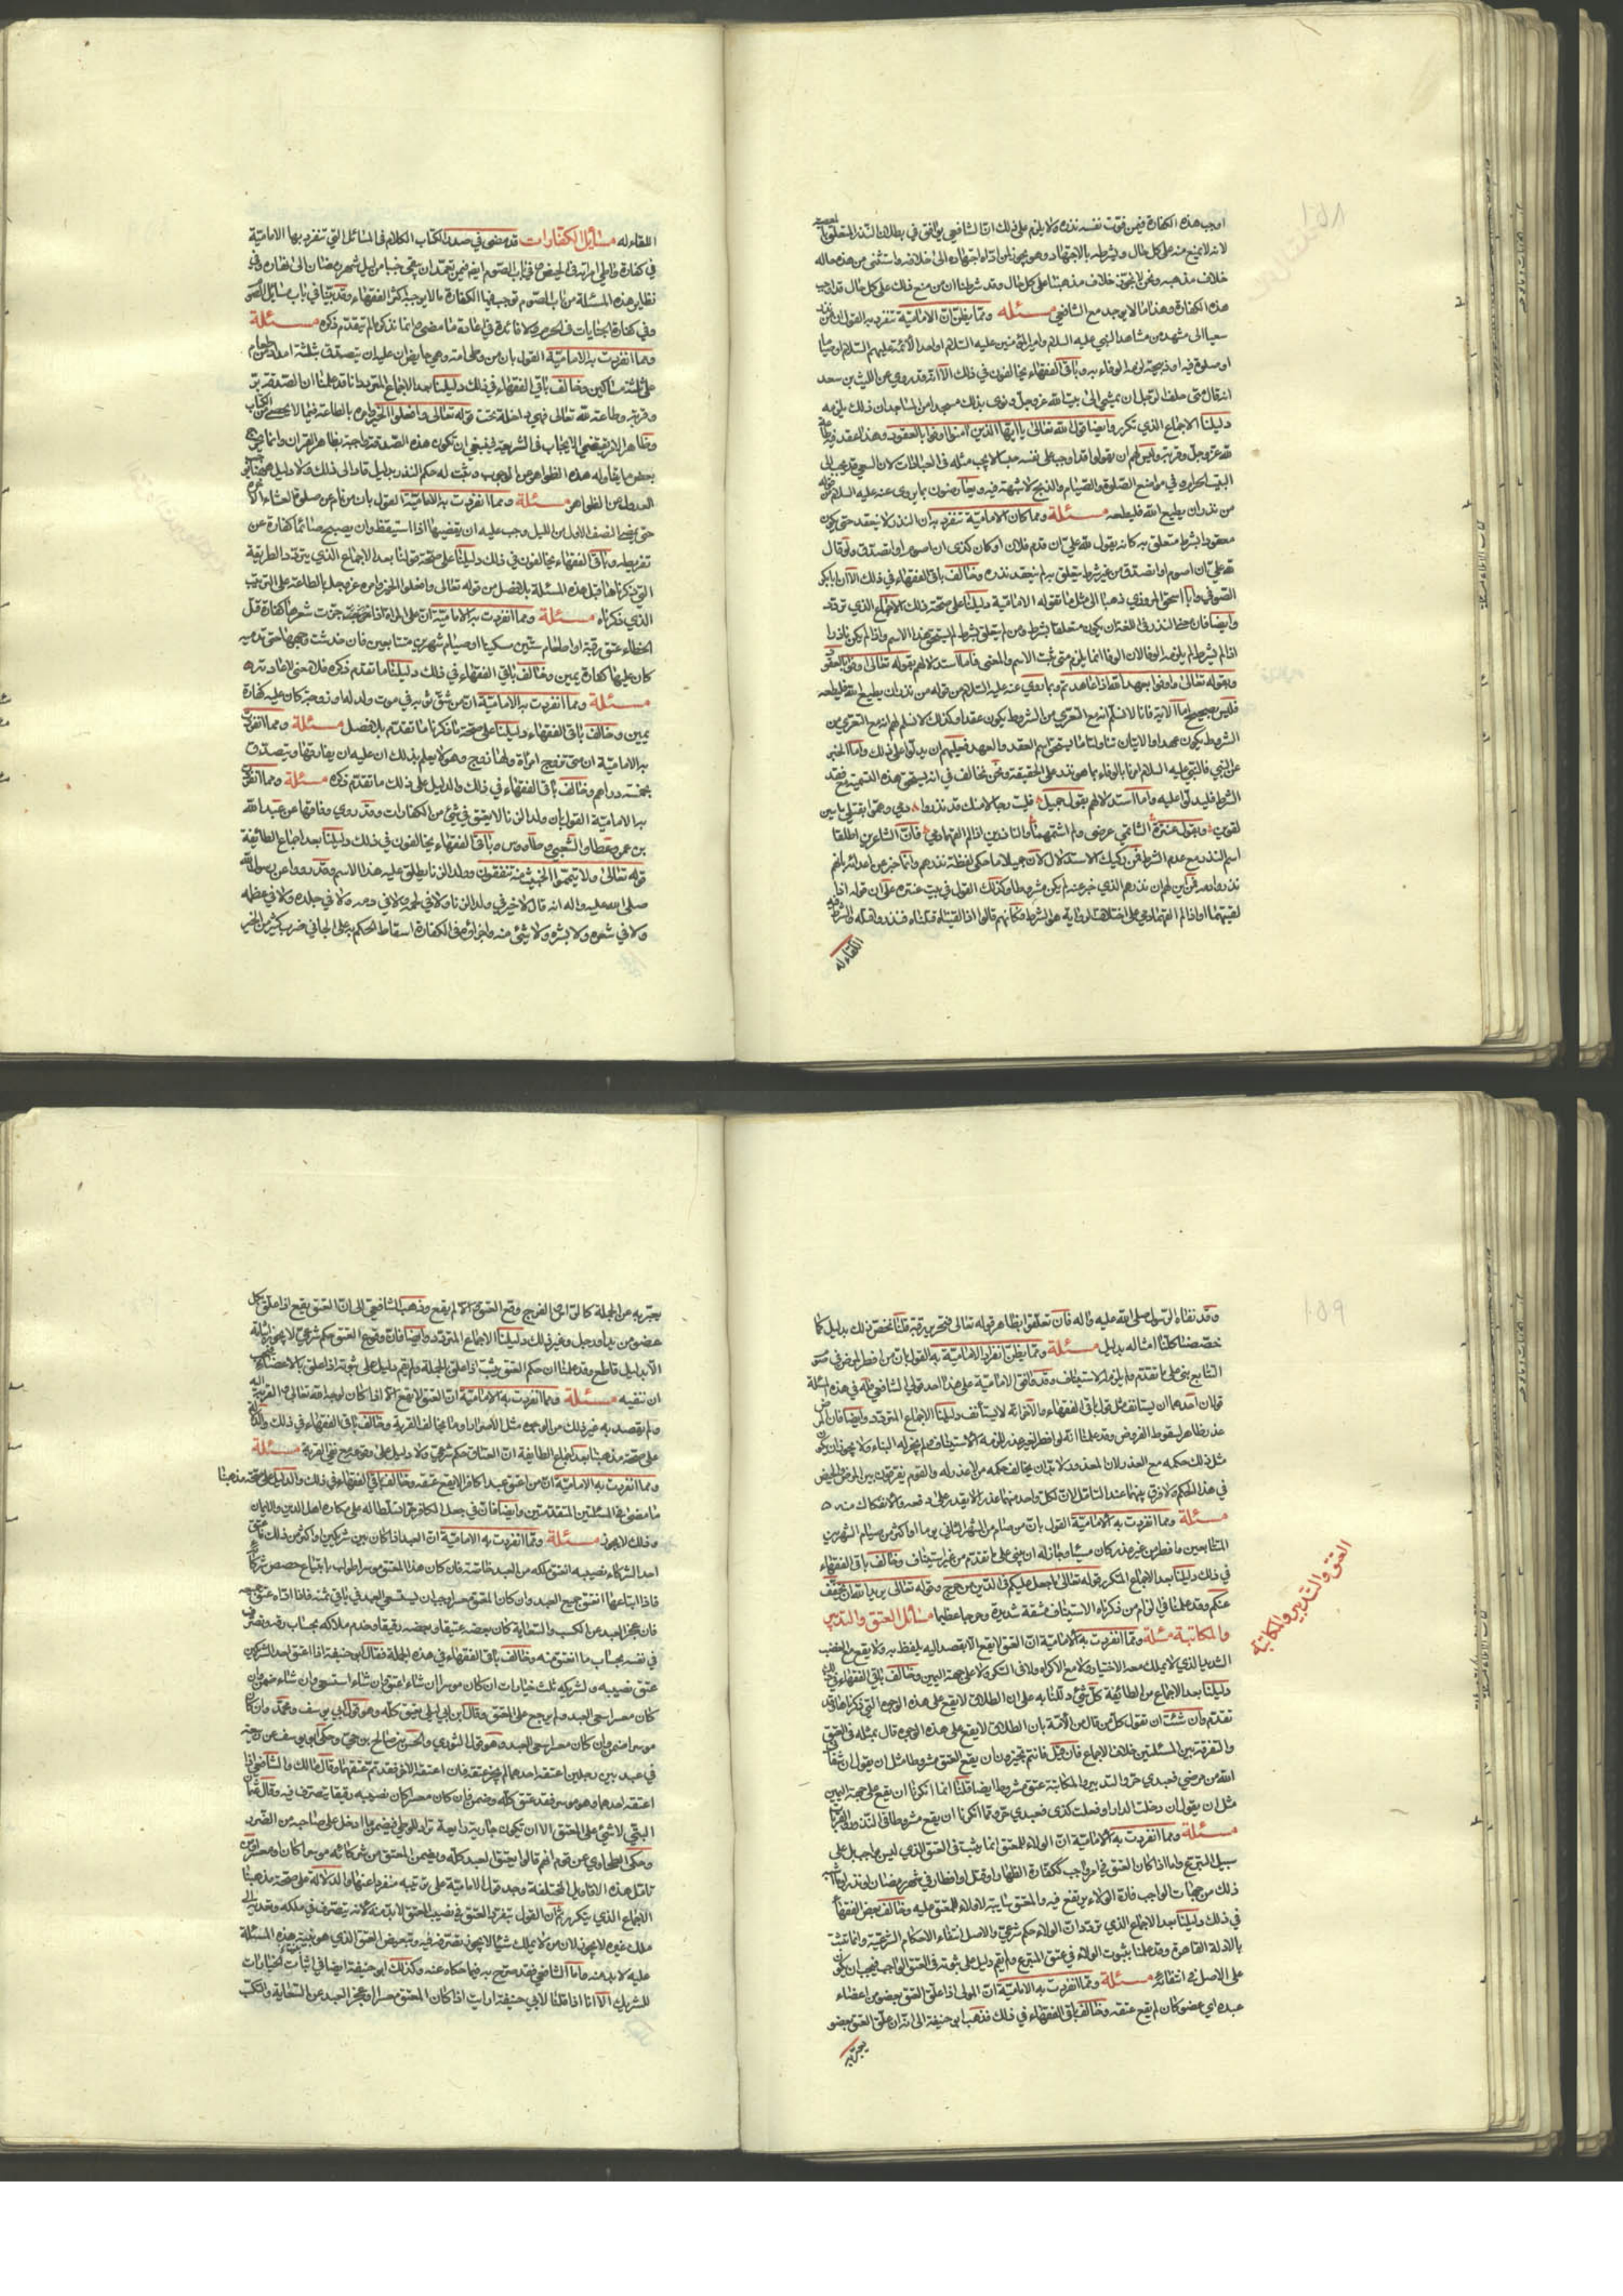 اوجب هذه الكفارة فيمن فوّت نفسه نذره ولا يلزم على ذلك انّ الشافعي يوافق في بطلان النذر المتعلق
لانه لا يمنع منه على كل حال وبشرطه بالاجتهاد وهو يجوز لمن اداه اجتهاده الى خلافه واستثنى من هذه حاله
خلاف مذهبه ونحن لا نجوّز خلاف مذهبنا على كل حال وقد شرطنا ان من منع ذلك على كل حال
هذه الكفارة وهذا ما لا يوجد مع الشافعي مسئلة ومما يظن انّ الامامية تنفرد به القول بان من نذر
سعيا الى مشهد من مشاهد النبي عليه السلام وامير المؤمنين عليه السلام او احد الأئمة عليهم السلام او صياما
او صلوة فيه او ذبيحة لزمه الوفاء به وباقي الفقهاء يخالفون في ذلك الّا انه قد روي عن الليث بن سعد
انه قال متى حلف الرجل ان يمشي الى بيت الله عز وجل ونوى بذلك مسجدا من المساجد ان ذلك يلزمه
دليلنا الاجماع الذي تكرر وايضا قول الله تعالى يا ايّها الذين آمنوا اوفوا بالعقود وهذا عقد فيه طاعة
لله عز وجل وقربة وليس لهم ان يقولوا قد اوجب على نفسه جنسا لا يجب مثله في العبادات لان السعي قد يجب الى
البيت الحرام وفي مواضع الصلوة والصيام والذبح لا شبهة فيه ويعارضون بما يروى عنه عليه السلام من قوله
من نذر ان يطيع الله فليطعه مسئلة ومما كان الامامية تنفرد به ان النذر لا ينعقد حتى يكون
معقودا بشرط متعلق به كانه يقول لله عليّ ان قدم فلان او كان كذى ان اصوم او اتصدق ولو قال
لله عليّ ان اصوم او اتصدق من غير شرط يتعلق به لم ينعقد نذره وخالف باقي الفقهاء في ذلك الّا ان ابابكر
الصيرفي وابا اسحق المروزي ذهبا الى مثل ما تقوله الامامية دليلنا على صحة ذلك الاجماع الذي تردد
وايضا فان معنى النذر في اللغة ان يكون متعلقا بشرط ومن لم يتعلق بشرط لم يستحق هذا الاسم واذا لم يكن ناذرا
اذا لم يشرط لم يلزمه الوفاء لان الوفا انما يلزم متى ثبت الاسم والمعنى فاما استدلالهم بقوله تعالى اوفوا بالعقود
وبقوله تعالى واوفوا بعهد الله اذا عاهدتم وبما روي عنه عليه السلام من قوله من نذر ان يطيع الله فليطعه
فليس بصحيح اما الآية فانا لا نسلّم انه مع التعري من الشروط يكون عقدا وكذلك لا نسلم لهم انه مع التعري من
الشروط يكون عهدا والآيتان تناولتا ما يستحق اسم العقد والعهد فعليهم ان يدلّوا على ذلك واما الخبر
عن النبي فالنبي عليه السلام امرنا بالوفاء بما هو نذر على الحقيقة ونحن نخالف في انه يستحق هذه التسمية مع فقد
الشرط فليدلّوا عليه واما استدلالهم بقول جميل فليت رجالا منك قد نذروا دمي وهموا بقتلي يابثين
لقوني وبقول عنترة الشاتمي عرضي ولم اشتمهما والناذرين اذا لم القهما دمي فانّ الشاعرين اطلقا
اسم النذر مع عدم الشرط فمن ركيك الاستدلال لان جميلا ما حكى لفظة نذرهم وانما خبر عن اعدائه بانهم
نذروا دمه فمن اين لهم ان نذرهم الذي خبر عنه لم يكن مشروطا وكذلك القول في بيت عنترة على ان قوله اذا
لقيتهما او اذا لم القهما دمي على اختلاف الرواية هو الشرط فكأنهم قالوا اذا لقيناه قتلناه فنذروا قتله والشرط فيه
اللقاء له
اللقاء له مسائل الكفارات قد مضى في صدر الكتاب الكلام في المسائل التي تنفرد بها الامامية
في كفارة واطي امراته في الحيض ومضى في باب الصوم ايضا فيمن تعمّد ان يبقى جنبا من ليل شهر رمضان الى نهاره وفي
نظاير هذه المسئلة من باب الصوم توجب فيها الكفارة ما لا يوجبه اكثر الفقهاء وقد بيّنا في باب مسائل الصوم
وفي كفارة الجنايات في الحرم ولا فائدة في اعادة ما مضى وانما نذكر ما لم يتقدم ذكره مسئلة
ومما انفردت به الامامية القول بان من وطئ امته وهي حايض ان عليه ان يتصدق بثلثة امداد من طعام
على ثلثة مساكين وخالف باقي الفقهاء في ذلك دليلنا بعد الاجماع المتردد انا قد علمنا ان الصدقة برّ
وقربة وطاعة لله تعالى فهي داخلة تحت قوله تعالى وافعلوا الخير وامره بالطاعة فيما لا يحصى من الكتاب
وظاهر الامر يقتضي الايجاب في الشريعة فينبغي ان تكون هذه الصدقة واجبة بظاهر القرآن وانما يخرج
بعض ما يتناوله هذه الظواهر من الوجوب ويثبت له حكم الندب بدليل قاد الى ذلك ولا دليل ههنا يوجب
العدول عن الظواهر مسئلة ومما انفردت به الامامية القول بان من نام عن صلوة العشاء الآخرة
حتى يمضي النصف الاول من الليل وجب عليه ان يقضيها اذا استيقظ وان يصبح صائما كفارة عن
تفريطه وباقي الفقهاء يخالفون في ذلك دليلنا على صحة قولنا بعد الاجماع الذي يتردد الطريقة
التي ذكرناها قبل هذه المسئلة بلا فصل من قوله تعالى وافعلوا الخير وامره عز وجل بالطاعة على الترتيب
الذي ذكرناه مسئلة ومما انفردت به الامامية ان على المرأة اذا جزّت شعرها كفارة قتل
الخطاء عتق رقبة او اطعام ستين مسكينا او صيام شهرين متتابعين فان خدشت وجهها حتى تدميه
كان عليها كفارة يمين وخالف باقي الفقهاء في ذلك ودليلنا ما تقدم ذكره فلا معنى لاعادته
مسئلة ومما انفردت به الامامية ان من شق ثوبه في موت ولد له او زوجة كان عليه كفارة
يمين وخالف باقي الفقهاء دليلنا على صحة ما ذكرناه ما تقدم بلا فصل مسئلة ومما انفردت
به الامامية ان من تزوج امرأة ولها زوج وهو لا يعلم بذلك ان عليه ان يفارقها ويتصدق
بخمسة دراهم وخالف باقي الفقهاء في ذلك والدليل على ذلك ما تقدم ذكره مسئلة ومما انفردت
به الامامية القول بان ولد الزنا لا يعتق في شيئ من الكفارات وقد روي وفاقها عن عبد الله
بن عمر وعطا والشعبي وطاووس وباقي الفقهاء يخالفون في ذلك دليلنا بعد اجماع الطائفة
قوله تعالى ولا تيمموا الخبيث منه تنفقون وولد الزنا يطلق عليه هذا الاسم وقد رووا عن رسول الله
صلى الله عليه واله انه قال لا خير في ولد الزنا ولا في لحمه ولا في دمه ولا في جلده ولا في عظمه
ولا في شعره ولا بشره ولا شيئ منه واجزاؤه في الكفارة اسقاط الحكم به على الجاني ضرب كثير من الخير
وقد نفاه الرسول صلى الله عليه واله فان تعلّقوا بظاهر قوله تعالى فتحرير رقبة قلنا نخص ذلك بدليل كما
خصّصنا كلنا امثاله بدليل مسئلة ومما يظن انفراد الامامية به القول بان من افطر لمرض في صوم
التتابع بنى على ما تقدم ولم يلزمه الاستيناف وقد وافق الامامية على هذا احد قولي الشافعي فله في هذه المسئلة
قولان احدهما ان يستأنف مثل قول باقي الفقهاء والآخر انه لا يستأنف دليلنا الاجماع المتردد وايضا فان المرض
عذر ظاهر لسقوط الفروض وقد علمنا انه لو افطر لغير عذر للزمه الاستيناف ولم يجز له البناء ولا يجوز ان يكون
مثل ذلك حكمه مع العذر لان المعذور لا بد ان يخالف حكمه من لا عذر له والقوم يفرقون بين المرض والحيض
في هذا الحكم ولا فرق بينهما عند التامل لان لكل واحد منهما عذر لا يقدر على دفعه والانفكاك منه
مسئلة ومما انفردت به الامامية القول بان من صام من الشهر الثاني يوما او اكثر من صيام الشهرين
المتتابعين وافطر من غير عذر كان مسيئا وجاز له ان يبني على ما تقدم من غير استيناف وخالف باقي الفقهاء
في ذلك دليلنا بعد الاجماع المتكرر قوله تعالى ما جعل عليكم في الدين من حرج وقوله تعالى يريد الله ان يخفف
عنكم وقد علمنا في الزام من ذكرناه الاستيناف مشقة شديدة وحرجا عظيما مسائل العتق والتدبير
والمكاتبة مسئلة ومما انفردت به الامامية انّ العتق لا يقع الّا بقصد اليه يلفظ به ولا يقع مع الغضب
الشديد الذي لا يملك معه الاختيار ولا مع الاكراه ولا في السكر ولا على جهة اليمين وخالف باقي الفقهاء في ذلك
دليلنا بعد الاجماع من الطائفة كل شئ دللنا به على ان الطلاق لا يقع على هذه الوجوه التي ذكرناها وقد
تقدم وان شئت ان تقول كل من قال من الامّة بان الطلاق لا يقع على هذه الوجوه قال بمثله في العتق
والتفرقة بين المسئلتين خلاف الاجماع فان قيل فانتم تجيزون ان يقع العتق مشروطا مثل ان يقول ان شفاني
الله من مرضي فعبدي حر والتدبير والمكاتبة عتق مشروط ايضا قلنا انما انكرنا ان يقع على جهة اليمين
مثل ان يقول ان دخلت الدار او فعلت كذى فعبدي حر وما انكرنا ان يقع مشروطا في النذور والقرب
مسئلة ومما انفردت به الامامية انّ الولاء للمعتق انما يثبت في العتق الذي ليس بواجب بل على
سبيل التبرع واما اذا كان العتق في امر واجب ككفارة الظهار او قتل او افطار في شهر رمضان او نذر وما اشبه
ذلك من جهات الواجب فان الولاء يرتفع فيه والمعتق سايبة لا ولاء للمعتق عليه وخالف بعض الفقهاء
في ذلك دليلنا بعد الاجماع الذي تردد ان الولاء حكم شرعي والاصل انتفاء الاحكام الشرعية وانما تثبت
بالادلة القاهرة وقد علمنا بثبوت الولاء في عتق المتبرع ولم يقم دليل على ثبوته في العتق الواجب فيجب ان يكون
على الاصل في انتفائه مسئلة ومما انفردت به الامامية انّ المولى اذا علق العتق بعضو من اعضاء
عبده اي عضو كان لم يقع عتقه وخالف باقي الفقهاء في ذلك فذهب ابو حنيفة الى انه ان علّق العتق بعضو
يعبّر به
العتق والتدبير والمكاتبة
يعبّر به عن الجملة كالرأس والفرج وقع العتق والّا لم يقع وذهب الشافعي الى انّ العتق يقع اذا علّق بكل
عضو من يد او رجل وغير ذلك دليلنا الاجماع المتردد وايضا فان وقوع العتق حكم شرعي لا يجوز اثباته
الّا بدليل قاطع وقد علمنا ان حكم العتق يثبت اذا علق بالجملة ولم يقم دليل على ثبوته اذا علق بالاعضاء فيجب
ان ننفيه مسئلة ومما انفردت به الامامية انّ العتق لا يقع الّا اذا كان لوجه الله تعالى والقربة اليه
ولم يقصد به غير ذلك من الوجوه مثل الاضرار وما يخالف القربة وخالف باقي الفقهاء في ذلك والدلالة
على صحة مذهبنا بعد اجماع الطايفة انّ العتاق حكم شرعي ولا دليل على وقوعه مع نفي القربة مسئلة
ومما انفردت به الامامية انّ من اعتق عبدا كافرا لا يقع عتقه وخالف باقي الفقهاء في ذلك والدليل على صحة مذهبنا
ما مضى في المسئلتين المتقدمتين وايضا فان في جعل الكافر حرّا تسلطا له على مكاره اهل الدين والايمان
وذلك لا يجوز مسئلة ومما انفردت به الامامية انّ العبد اذا كان بين شريكين او اكثر من ذلك فاعتق
احد الشركاء نصيبه انعتق ملكه من العبد خاصة فان كان هذا المعتق موسرا طولب بابتياع حصص شركائه
فاذا ابتاعها انعتق جميع العبد وان كان المعتق معسرا وجب ان يستسعي العبد في باقي ثمنه فاذا ادّاه عتق جميعه
فان عجز العبد عن الكسب والسعاية كان بعضه عتيقا وبعضه رقيقا وخدم ملاكه بحساب رقه وتصرف
في نفسه بحساب ما انعتق منه وخالف باقي الفقهاء في هذه الجملة فقال ابو حنيفة اذا اعتق احد الشريكين
عتق نصيبه ولشريكه ثلث خيارات ان كان موسرا ان شاء اعتق وان شاء استسعى وان شاء ضمن وان
كان معسرا سعى العبد ولم يرجع على المعتق وقال ابن ابي ليلى يعتق كله وهو قول ابي يوسف ومحمد وان كان
موسرا ضمن وان كان معسرا سعى العبد وهو قول الثوري والحسن بن صالح بن حي وحكى ابو يوسف عن ربيعة
في عبد بين رجلين اعتقه احدهما لم يجز عتقه فان اعتقه الآخر فقد تم عتقهما وقال مالك والشافعي اذا
اعتقه احدهما وهو موسر فقد عتق كله وضمن فان كان معسرا كان نصيبه رقيقا يتصرف فيه وقال عثمان
البتي لا شئ على المعتق الا ان تكون جارية رايعة تراد للوطي فيضمن ما ادخل على صاحبه من الضرر
وحكى الطحاوي عن قوم انهم قالوا يعتق العبد كله ويضمن المعتق من شركائه موسرا كان او معسرا ومن
تأمّل هذه الاقاويل المختلفة وجد قول الامامية على ترتيبه منفردا عنها والدلالة على صحة مذهبنا
الاجماع الذي يتكرر ثم ان القول بتفرد العتق في نصيب المعتق لا بد منه لانه يتصرف في ملكه وتعديه الى
ملك غيره لا يجوز لان من لا يملك شيئا لا يجوز تصرفه فيه وتبعيض العتق الذي هو نتيجة هذه المسئلة
عليه لا بد منه واما الشافعي فقد صرح به فيما حكاه عنه وكذلك ابو حنيفة ايضا في اثبات الخيارات
للشريك الّا انا اذا قلنا لابي حنيفة ارايت اذا كان المعتق معسرا وعجز العبد عن السعاية والتكسب